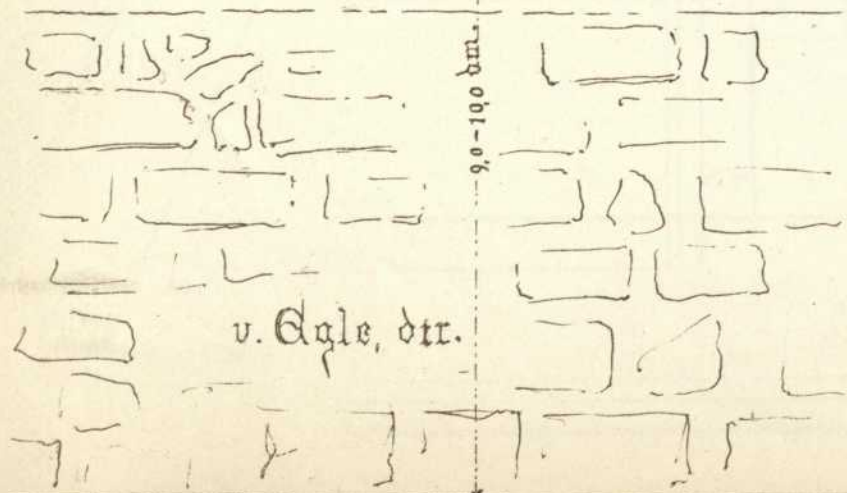 9,0-10,0 dm.
v. Egle, dtr.